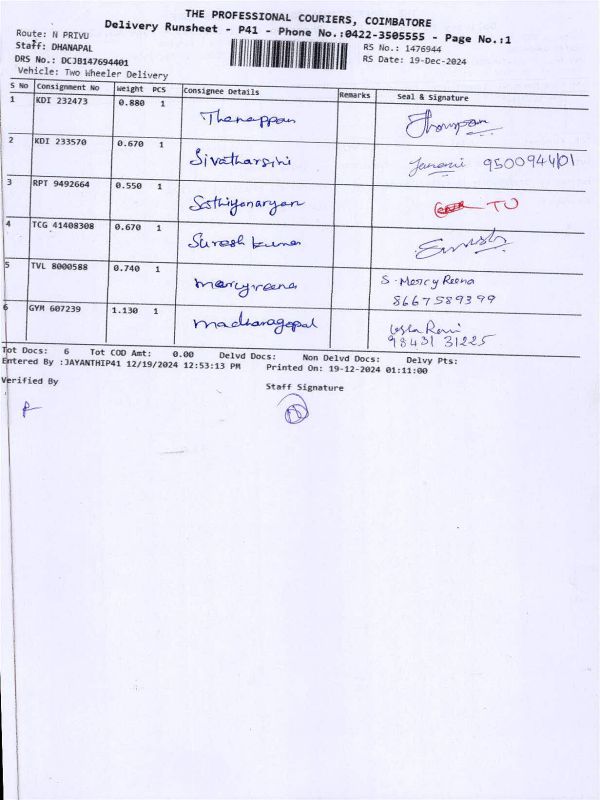 THE PROFESSIONAL COURIERS, COIMBATORE
Delivery Runsheet - P41 - Phone No.:0422-3505555 - Page No.:1
Route: N PRIVU
RS No.: 1476944
Staff: DHANAPAL
RS Date: 19-Dec-2024
DRS No.: DCJB147694401
Vehicle: Two Wheeler Delivery
S No Consignment No Weight PCS Consignee Details Remarks Seal & Signature
1 KDI 232473 0.880 1 Thanappan
2 KDI 233570 0.670 1 Sivatharsini Janani 9500944101
3 RPT 9492664 0.550 1 Sathiyanaryan TU
4 TCG 41408308 0.670 1 Suresh kumar
5 TVL 8000588 0.740 1 mercyreena S. Mercy Reena
8667589399
6 GYM 607239 1.130 1 madhanagopal Rani
98431 31225
Tot Docs: 6 Tot COD Amt: 0.00 Delvd Docs: Non Delvd Docs: Delvy Pts:
Entered By :JAYANTHIP41 12/19/2024 12:53:13 PM Printed On: 19-12-2024 01:11:00
Verified By
Staff Signature